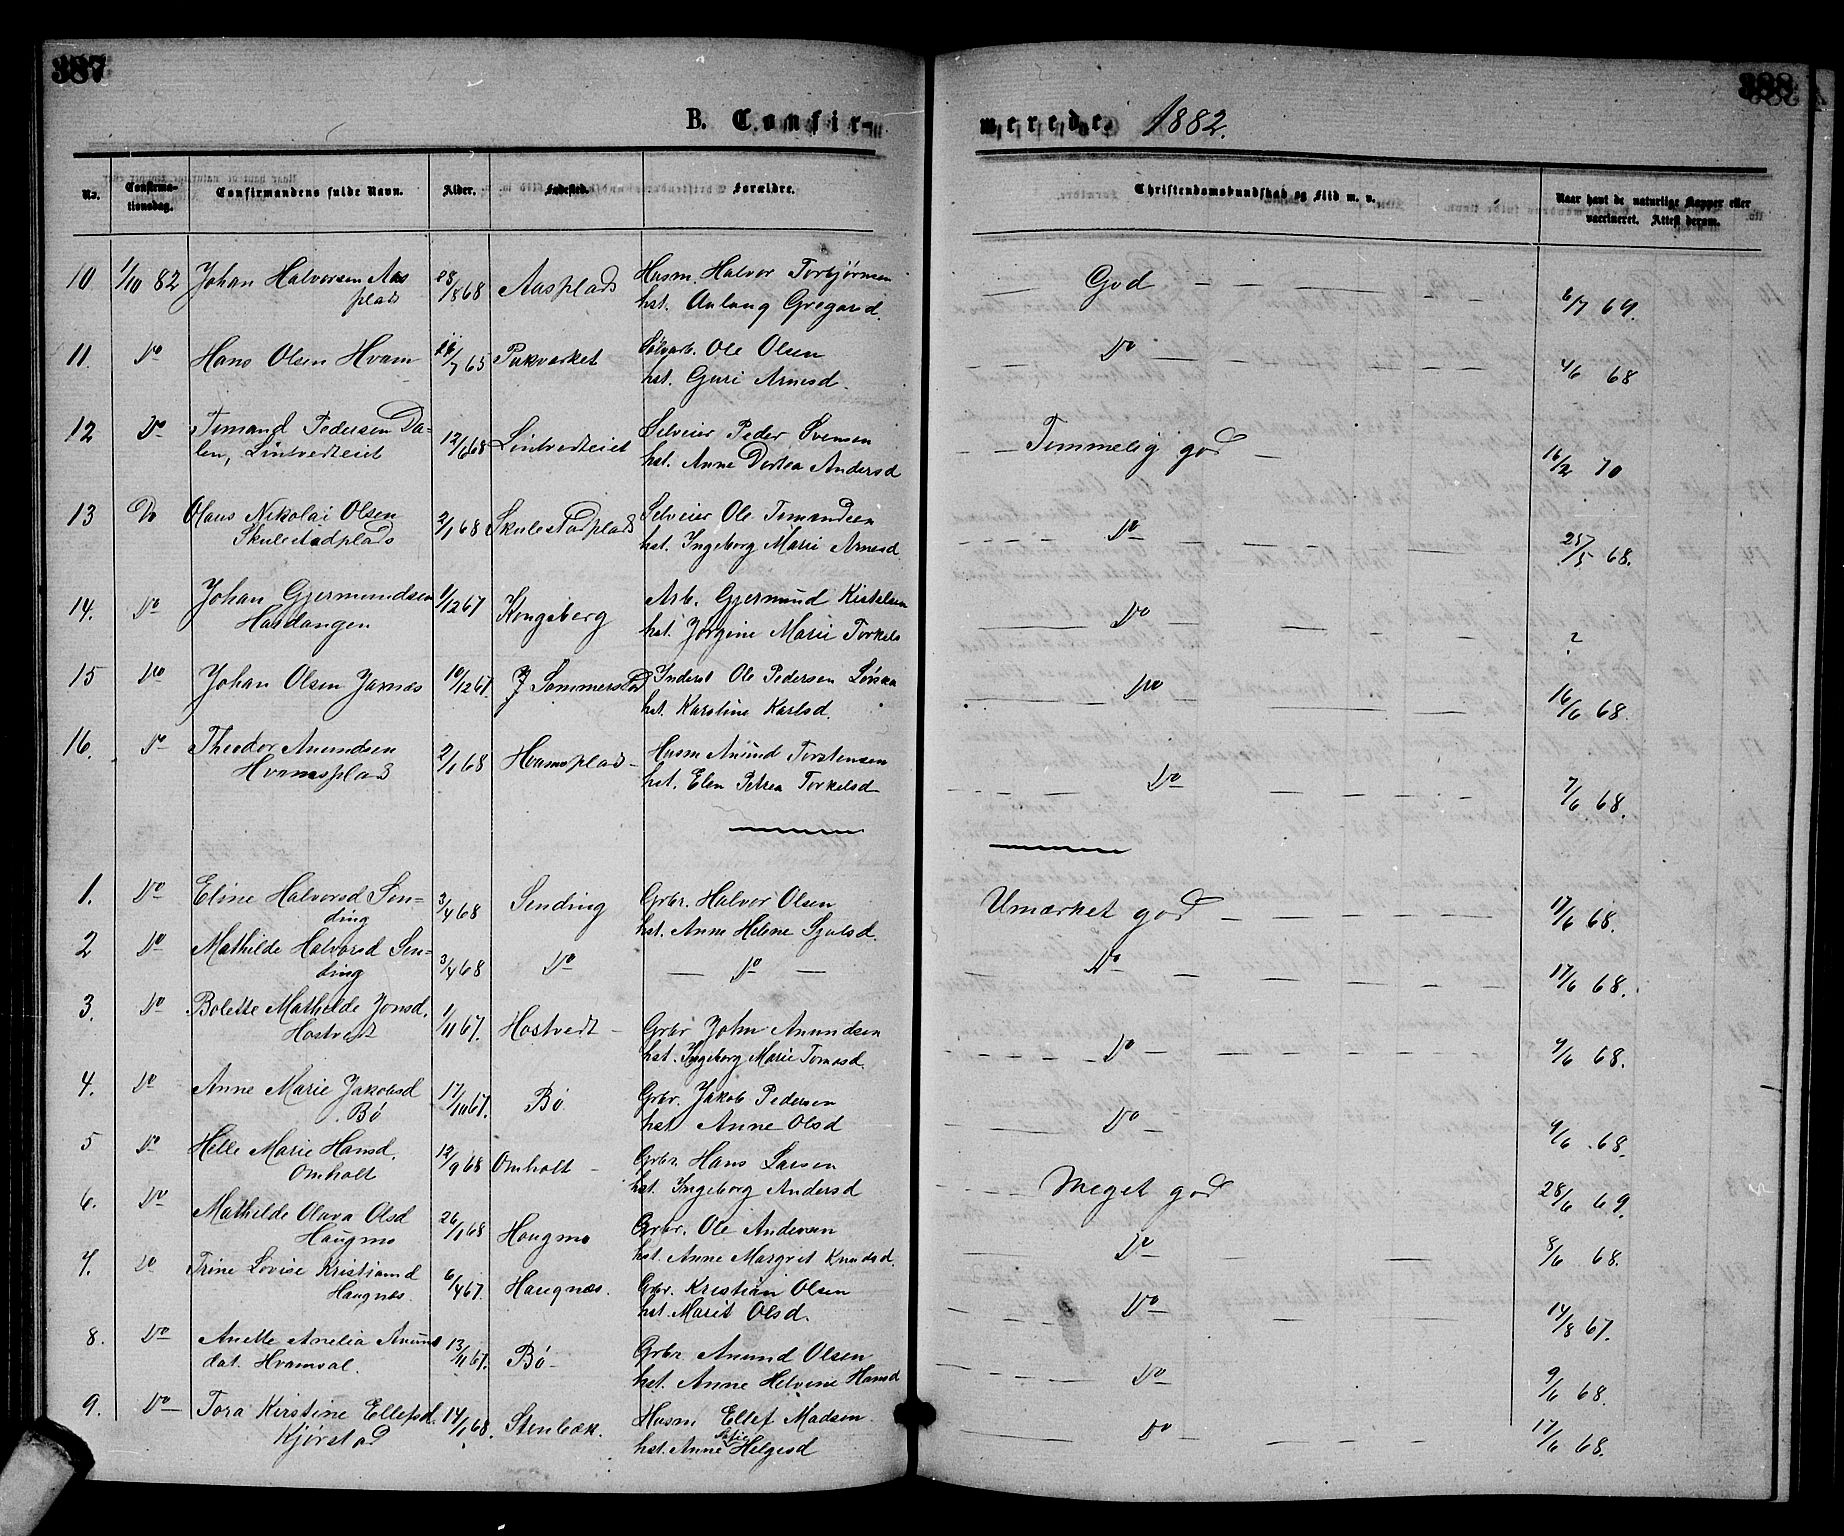 387
388
B. Confir-
merede. 1882.
No. Confirma-tionsdag. Confirmandens fulde Navn. Alder. Fødested. Forældre. Christendomskundskab og Flid m. v. Naar havt de naturlige Kopper eller vaccineret. Attest derom.
10 1/10 82 Johan Halvorsen Aas 28/8 68 Aasplads Husm. Halvor Torbjørnsen God 6/7 69.
plads hst. Anlaug Gregard.
11. Do Hans Olsen Hvam /7 65 Pukværket Sølvarb. Ole Olsen Do 4/6 68
hst. Guri Arnesd.
12 Do Tomand Pedersen Da- 12/6 68 Lintvedteiet Selveier Peder Svensen Temmelig god 16/2 70
len, Lintvedteiet hst. Anne Dortea Andersd
13 Do Olaus Nikolai Olsen 2/1 68 Skulestadplads Selveier Ole Tomandsen Do 25/5 68.
Skulestadplads hst. Ingeborg Marie Arnesd
14. Do Johan Gjermundsen 1/12 67 Kongsberg Arb. Gjermund Kittelsen Do ?
Hardangen hst. Jørgine Marie Torkels
15 Do Johan Olsen Jarnæs 10/12 67. J Sommerstad Inderst Ole Pedersen Do 16/6 68.
hst. Karoline Karlsd.
16. Do Theodor Anundsen 2/1 68 Hvamsplads Husm Anund Torstensen Do 7/6 68.
Hvamsplads hst. Elen Petrea Torkelsd
1. Do Eline Halvorsd Sen- 3/4 68 Sending Grbr. Halvor Olsen Umærket god 17/6 68.
ding hst. Anne Helene
2 Do Mathilde Halvorsd Sen- 3/4 68 Do Do Do 17/6 68.
ding
3. Do Bolette Mathilde Jonsd. 1/11 67. Hostvedt Grbr John Anundsen Do 9/6 68.
Hostvedt hst. Ingeborg Marie Tomasd.
4. Do Anne Marie Jakobsd 17/10 67. Bø Grbr. Jakob Pedersen Do 9/6 68.
Bø hst Anne Olsd
5 Do Helle Marie Hansd. 12/9 68 Omholt Grbr. Hans Larsen Meget god 28/6 69.
Omholt hst. Ingeborg Andersd
6. Do Mathilde Olava Olsd 26/1 68 Haugmo Grbr. Ole Andersen Do 8/6 68.
Haugmo hst. Anne Margret Knudsd.
7. Do Trine Lovise Kristiansd 6/4 67. Haugnæs. Grbr. Kristian Olsen Do 14/8 67.
Haugnæs. hst. Marit Olsd.
8. Do Anette Amelia Anund 13/11 67. Bø Grbr. Anund Olsen Do 9/6 68.
dat. Hvamsal. hst. Anne Helvine Hansd
9. Do Tora Kirstine Ellefsd 14/1 68. Stenbæk. Husm Ellef Madsen Do 17/6 68.
Kjørstad hst. Anne Sofie Helgesd